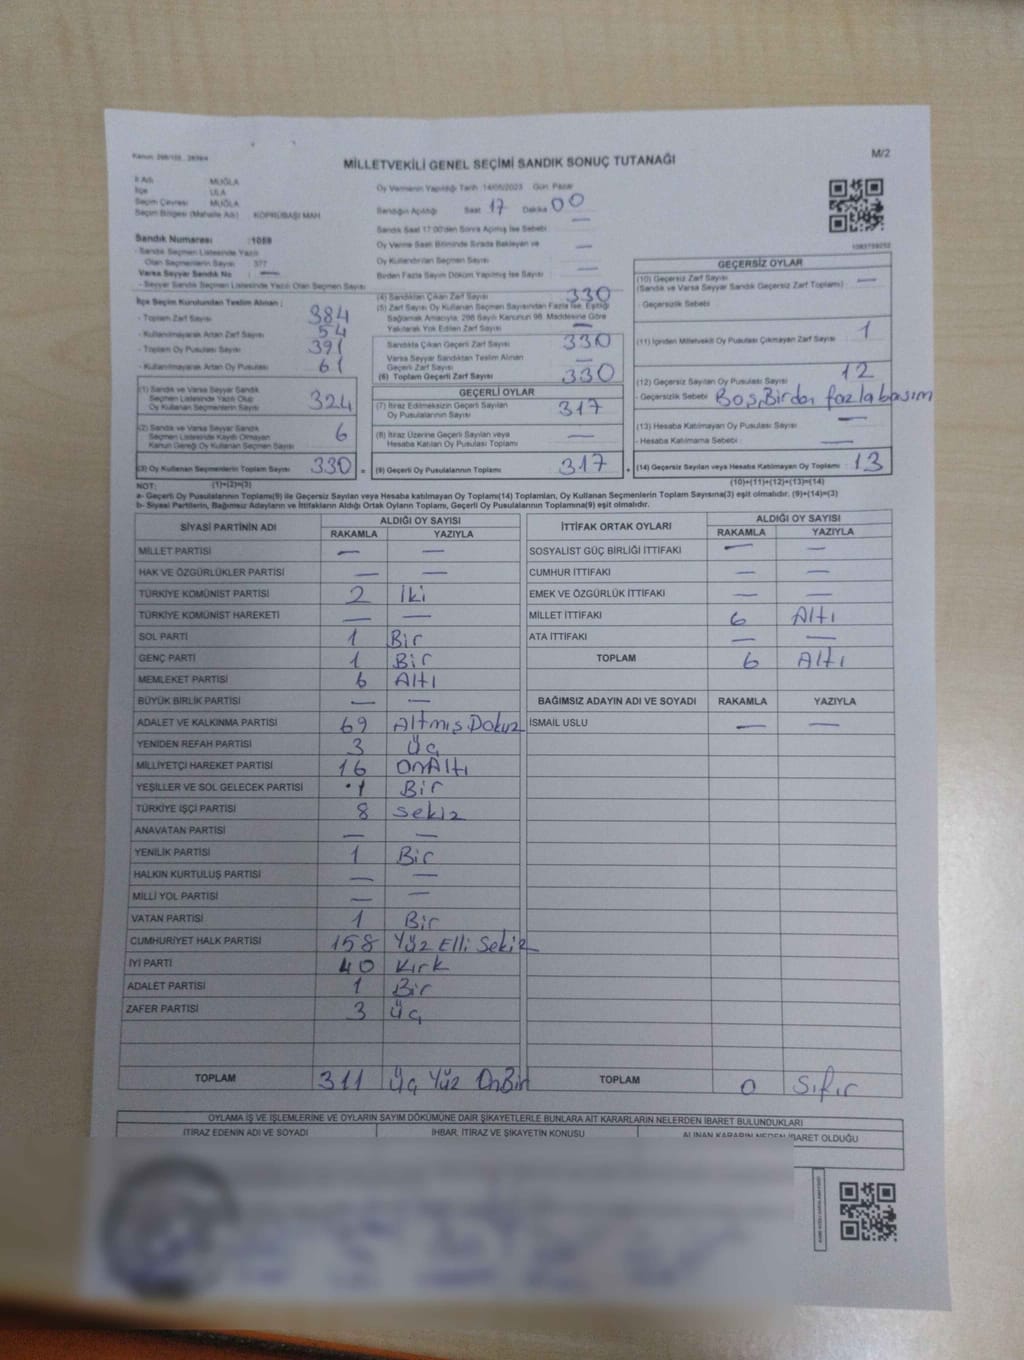 MİLLETVEKİLİ GENEL SEÇİMİ SANDIK SONUÇ TUTANAĞI
M/2
İl Adı MUĞLA
İlçe ULA
Seçim Çevresi MUĞLA
Seçim Bölgesi (Mahalle Adı) KÖPRÜBAŞI MAH
Sandık Numarası :1059
- Sandık Seçmen Listesinde Yazılı
Olan Seçmenlerin Sayısı : 377
Varsa Seyyar Sandık No : —
- Seyyar Sandık Seçmen Listesinde Yazılı Olan Seçmen Sayısı :
İlçe Seçim Kurulundan Teslim Alınan ;
- Toplam Zarf Sayısı 384
- Kullanılmayarak Artan Zarf Sayısı 54
- Toplam Oy Pusulası Sayısı 391
- Kullanılmayarak Artan Oy Pusulası 61
(1) Sandık ve Varsa Seyyar Sandık
Seçmen Listesinde Yazılı Olup
Oy Kullanan Seçmenlerin Sayısı 324
(2) Sandık ve Varsa Seyyar Sandık
Seçmen Listesinde Kayıtlı Olmayan
Kanun Gereği Oy Kullanan Seçmen Sayısı 6
(3) Oy Kullanan Seçmenlerin Toplam Sayısı 330
Oy Vermenin Yapıldığı Tarih :14/05/2023 Gün: Pazar
Sandığın Açıldığı Saat 17 Dakika 00
Sandık Saat 17:00'den Sonra Açılmış İse Sebebi —
Oy Verme Saati Bitiminde Sırada Bekleyen ve
Oy Kullandırılan Seçmen Sayısı —
Birden Fazla Sayım Döküm Yapılmış İse Sayısı —
(4) Sandıktan Çıkan Zarf Sayısı 330
(5) Zarf Sayısı Oy Kullanan Seçmen Sayısından Fazla İse, Eşitliği
Sağlamak Amacıyla, 298 Sayılı Kanunun 98. Maddesine Göre
Yakılarak Yok Edilen Zarf Sayısı —
Sandıkta Çıkan Geçerli Zarf Sayısı 330
Varsa Seyyar Sandıktan Teslim Alınan
Geçerli Zarf Sayısı —
(6) Toplam Geçerli Zarf Sayısı 330
GEÇERLİ OYLAR
(7) İtiraz Edilmeksizin Geçerli Sayılan
Oy Pusulalarının Sayısı 317
(8) İtiraz Üzerine Geçerli Sayılan veya
Hesaba Katılan Oy Pusulası Toplamı —
(9) Geçerli Oy Pusulalarının Toplamı 317
GEÇERSİZ OYLAR
(10) Geçersiz Zarf Sayısı —
(Sandık ve Varsa Seyyar Sandık Geçersiz Zarf Toplamı)
- Geçersizlik Sebebi :
(11) İçinden Milletvekili Oy Pusulası Çıkmayan Zarf Sayısı 1
(12) Geçersiz Sayılan Oy Pusulası Sayısı 12
- Geçersizlik Sebebi : Boş, Birden fazla basım
(13) Hesaba Katılmayan Oy Pusulası Sayısı —
- Hesaba Katılmama Sebebi : —
(14) Geçersiz Sayılan veya Hesaba Katılmayan Oy Toplamı 13
NOT: (1)+(2)=(3) (10)+(11)+(12)+(13)=(14)
a- Geçerli Oy Pusulalarının Toplamı(9) ile Geçersiz Sayılan veya Hesaba katılmayan Oy Toplamı(14) Toplamları, Oy Kullanan Seçmenlerin Toplam Sayısına(3) eşit olmalıdır. (9)+(14)=(3)
b- Siyasi Partilerin, Bağımsız Adayların ve İttifakların Aldığı Ortak Oyların Toplamı, Geçerli Oy Pusulalarının Toplamına(9) eşit olmalıdır.
SİYASİ PARTİNİN ADI ALDIĞI OY SAYISI
RAKAMLA YAZIYLA
MİLLET PARTİSİ — —
HAK VE ÖZGÜRLÜKLER PARTİSİ — —
TÜRKİYE KOMÜNİST PARTİSİ 2 İki
TÜRKİYE KOMÜNİST HAREKETİ — —
SOL PARTİ 1 Bir
GENÇ PARTİ 1 Bir
MEMLEKET PARTİSİ 6 Altı
BÜYÜK BİRLİK PARTİSİ — —
ADALET VE KALKINMA PARTİSİ 69 Altmış Dokuz
YENİDEN REFAH PARTİSİ 3 Üç
MİLLİYETÇİ HAREKET PARTİSİ 16 OnAltı
YEŞİLLER VE SOL GELECEK PARTİSİ 1 Bir
TÜRKİYE İŞÇİ PARTİSİ 8 sekiz
ANAVATAN PARTİSİ — —
YENİLİK PARTİSİ 1 Bir
HALKIN KURTULUŞ PARTİSİ — —
MİLLİ YOL PARTİSİ — —
VATAN PARTİSİ 1 Bir
CUMHURİYET HALK PARTİSİ 158 Yüz Elli Sekiz
İYİ PARTİ 40 Kırk
ADALET PARTİSİ 1 Bir
ZAFER PARTİSİ 3 Üç
TOPLAM 311 Üç Yüz OnBir
İTTİFAK ORTAK OYLARI ALDIĞI OY SAYISI
RAKAMLA YAZIYLA
SOSYALİST GÜÇ BİRLİĞİ İTTİFAKI — —
CUMHUR İTTİFAKI — —
EMEK VE ÖZGÜRLÜK İTTİFAKI — —
MİLLET İTTİFAKI 6 Altı
ATA İTTİFAKI — —
TOPLAM 6 Altı
BAĞIMSIZ ADAYIN ADI VE SOYADI RAKAMLA YAZIYLA
İSMAİL USLU — —
TOPLAM 0 Sıfır
OYLAMA İŞ VE İŞLEMLERİNE VE OYLARIN SAYIM DÖKÜMÜNE DAİR ŞİKAYETLERLE BUNLARA AİT KARARLARIN NELERDEN İBARET BULUNDUKLARI
İTİRAZ EDENİN ADI VE SOYADI İHBAR, İTİRAZ VE ŞİKAYETİN KONUSU ALINAN KARARIN NEDEN İBARET OLDUĞU